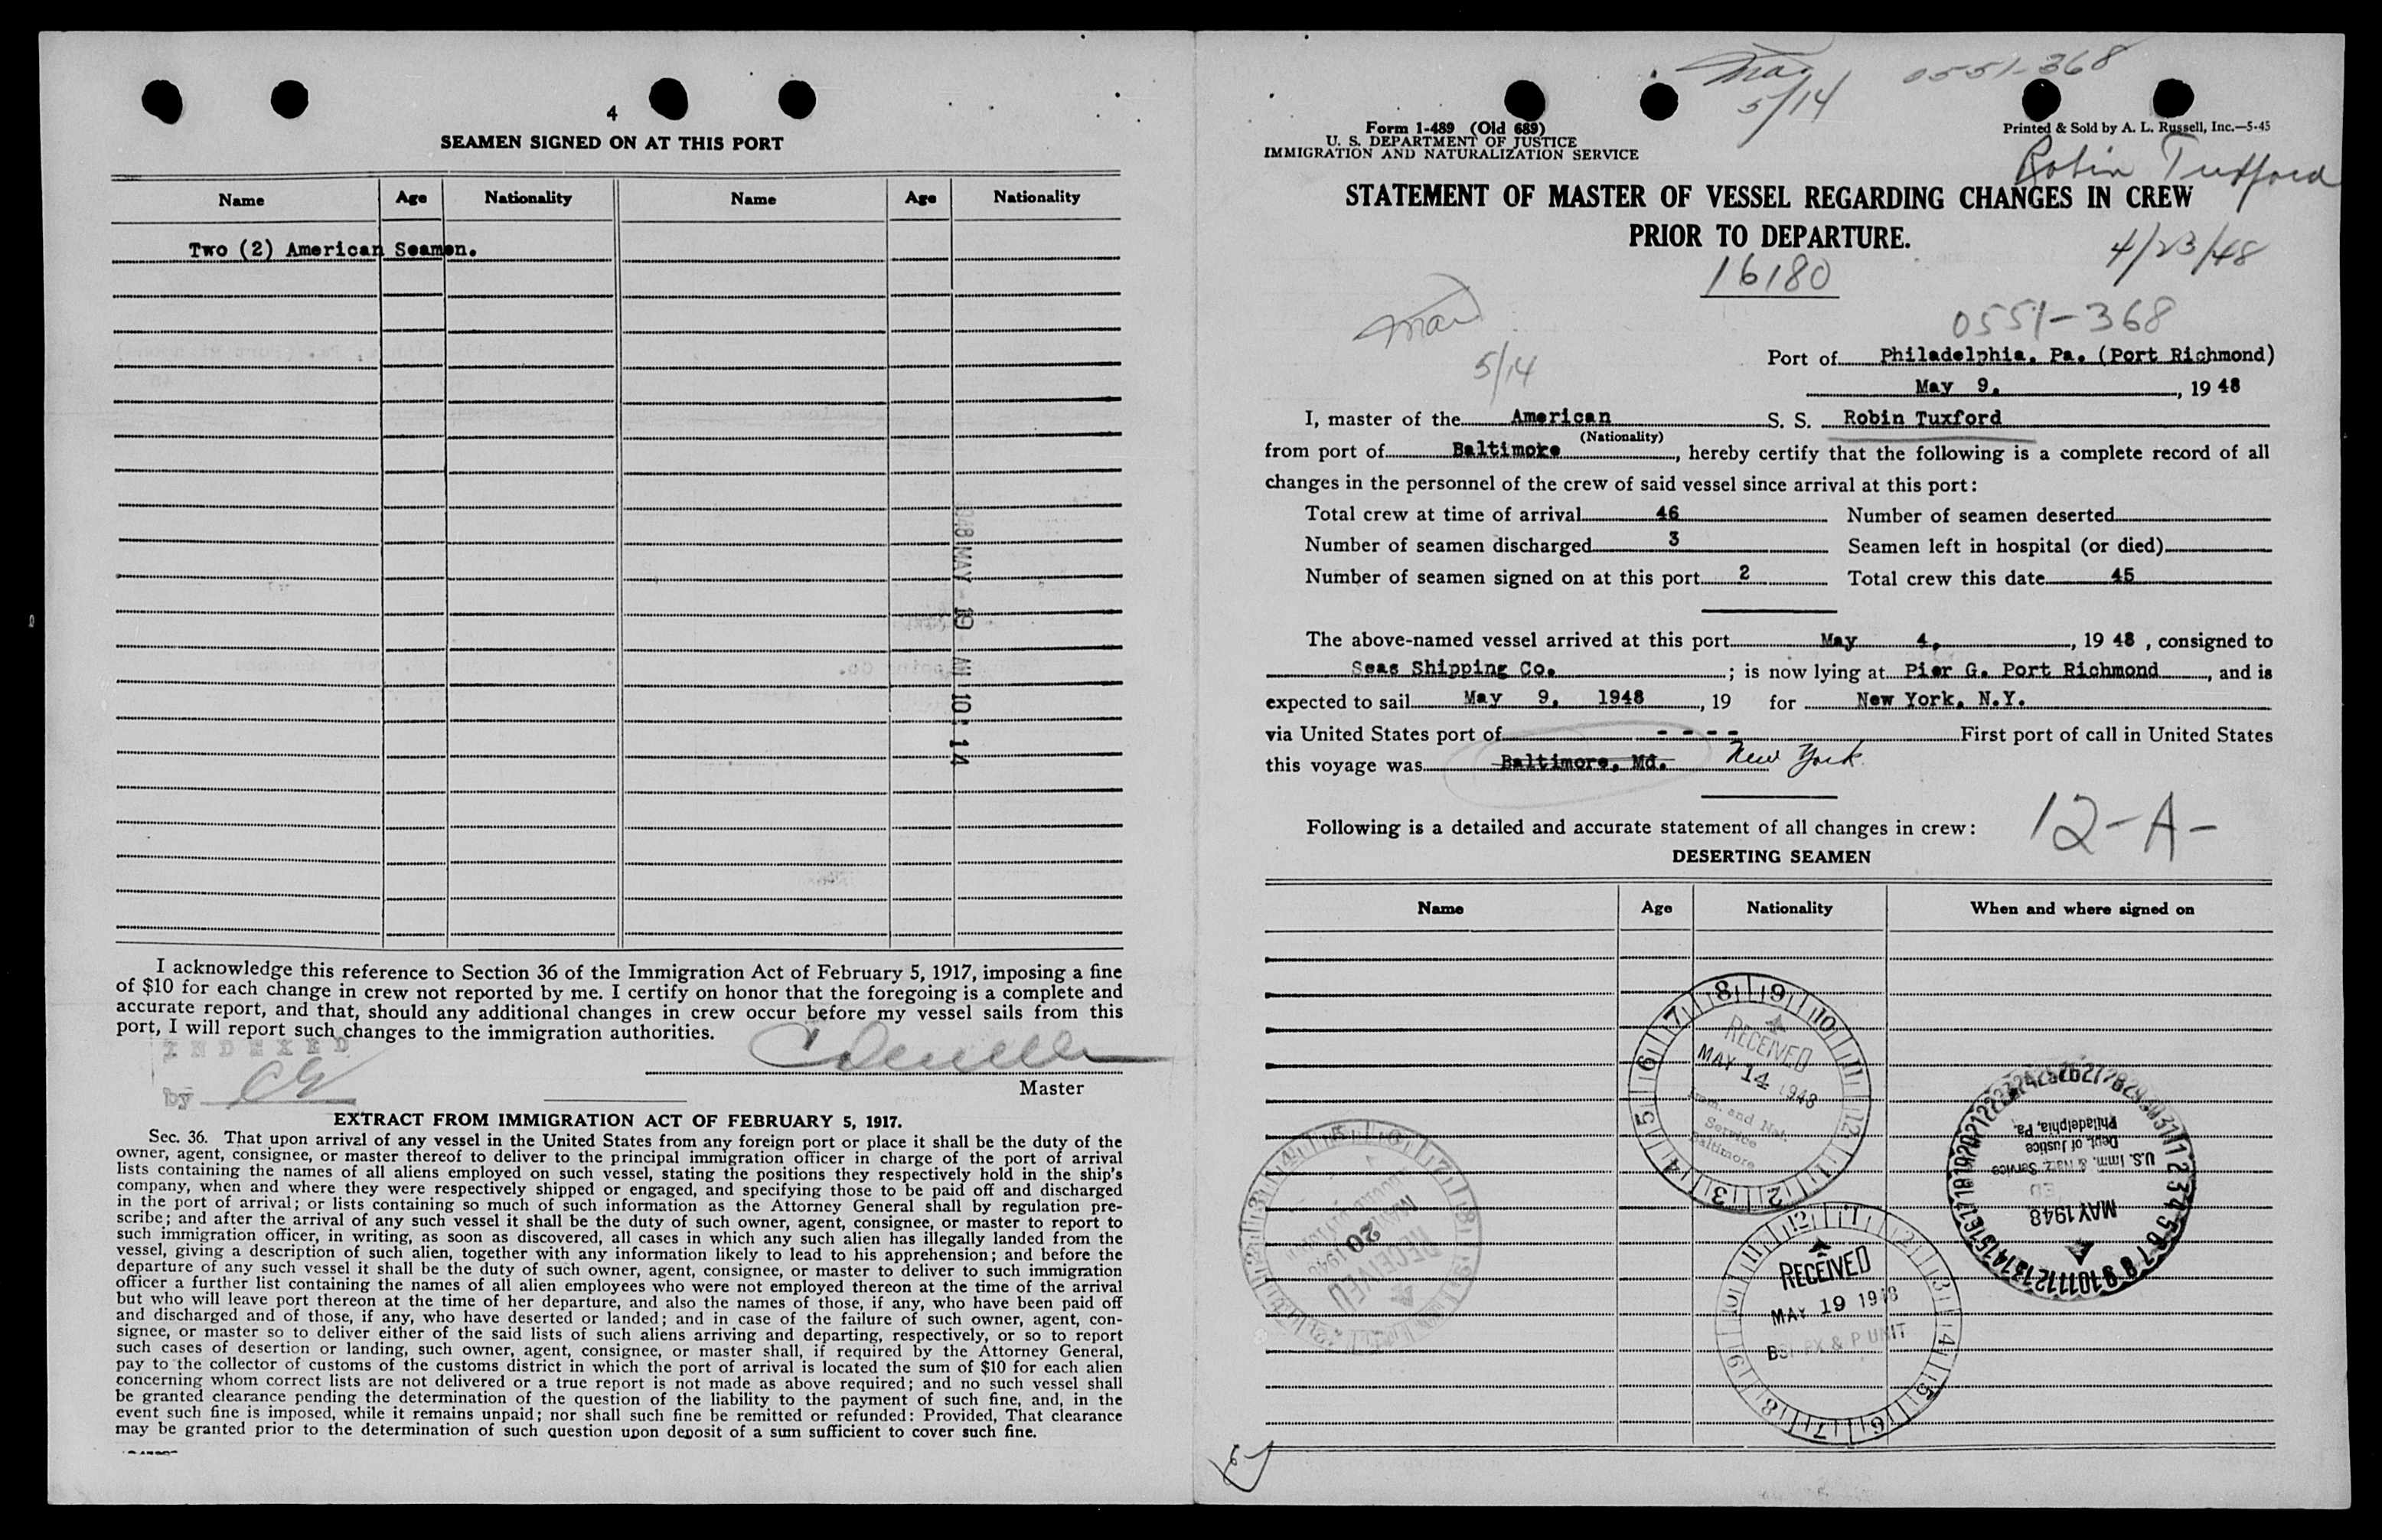 4
SEAMEN SIGNED ON AT THIS PORT
Name Age Nationality Name Age Nationality
Two (2) American Seamen.
MAY 19 AM 10:14
I acknowledge this reference to Section 36 of the Immigration Act of February 5, 1917, imposing a fine
of $10 for each change in crew not reported by me. I certify on honor that the foregoing is a complete and
accurate report, and that, should any additional changes in crew occur before my vessel sails from this
port, I will report such changes to the immigration authorities.
INDEXED
by
Master
EXTRACT FROM IMMIGRATION ACT OF FEBRUARY 5, 1917.
Sec. 36. That upon arrival of any vessel in the United States from any foreign port or place it shall be the duty of the
owner, agent, consignee, or master thereof to deliver to the principal immigration officer in charge of the port of arrival
lists containing the names of all aliens employed on such vessel, stating the positions they respectively hold in the ship's
company, when and where they were respectively shipped or engaged, and specifying those to be paid off and discharged
in the port of arrival; or lists containing so much of such information as the Attorney General shall by regulation pre-
scribe; and after the arrival of any such vessel it shall be the duty of such owner, agent, consignee, or master to report to
such immigration officer, in writing, as soon as discovered, all cases in which any such alien has illegally landed from the
vessel, giving a description of such alien, together with any information likely to lead to his apprehension; and before the
departure of any such vessel it shall be the duty of such owner, agent, consignee, or master to deliver to such immigration
officer a further list containing the names of all alien employees who were not employed thereon at the time of the arrival
but who will leave port thereon at the time of her departure, and also the names of those, if any, who have been paid off
and discharged and of those, if any, who have deserted or landed; and in case of the failure of such owner, agent, con-
signee, or master so to deliver either of the said lists of such aliens arriving and departing, respectively, or so to report
such cases of desertion or landing, such owner, agent, consignee, or master shall, if required by the Attorney General,
pay to the collector of customs of the customs district in which the port of arrival is located the sum of $10 for each alien
concerning whom correct lists are not delivered or a true report is not made as above required; and no such vessel shall
be granted clearance pending the determination of the question of the liability to the payment of such fine, and, in the
event such fine is imposed, while it remains unpaid; nor shall such fine be remitted or refunded: Provided, That clearance
may be granted prior to the determination of such question upon deposit of a sum sufficient to cover such fine.
5/14
0551-368
Form 1-489 (Old 689)
U. S. DEPARTMENT OF JUSTICE
IMMIGRATION AND NATURALIZATION SERVICE
Printed & Sold by A. L. Russell, Inc.—5-45
Robin Tuxford
STATEMENT OF MASTER OF VESSEL REGARDING CHANGES IN CREW
PRIOR TO DEPARTURE.
4/23/48
16180
0551-368
5/14
Port of Philadelphia, Pa. (Port Richmond)
May 9, , 19 48
I, master of the American S. S. Robin Tuxford
(Nationality)
from port of Baltimore , hereby certify that the following is a complete record of all
changes in the personnel of the crew of said vessel since arrival at this port:
Total crew at time of arrival 46 Number of seamen deserted
Number of seamen discharged 3 Seamen left in hospital (or died)
Number of seamen signed on at this port 2 Total crew this date 45
The above-named vessel arrived at this port May 4, , 19 48 , consigned to
Seas Shipping Co. ; is now lying at Pier G. Port Richmond , and is
expected to sail May 9, 1948 , 19 for New York, N.Y.
via United States port of - - - - First port of call in United States
this voyage was Baltimore, Md. New York
Following is a detailed and accurate statement of all changes in crew:
12-A-
DESERTING SEAMEN
Name Age Nationality When and where signed on
RECEIVED
MAY 14 1948
Imm. and Nat.
Service
Baltimore
U.S. Imm. & Natz. Service
Dept. of Justice
Philadelphia, Pa.
MAY 1948
RECEIVED
MAY 20 1948
RECEIVED
MAY 19 1948